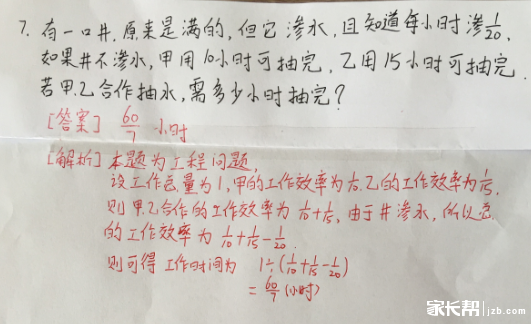 7. 有一口井.原来是满的,但它渗水,且知道每小时渗1/20,
如果井不渗水,甲用10小时可抽完,乙用15小时可抽完.
若甲.乙合作抽水,需多少小时抽完?
[答案] 60/7 小时
[解析] 本题为工程问题,
设工作总量为1,甲的工作效率为1/10.乙的工作效率为1/15.
则甲.乙合作的工作效率为 1/10+1/15, 由于井渗水,所以总
的工作效率为 1/10+1/15-1/20.
则可得工作时间为 1÷(1/10+1/15-1/20)
=60/7(小时)
家长帮 jzb.com